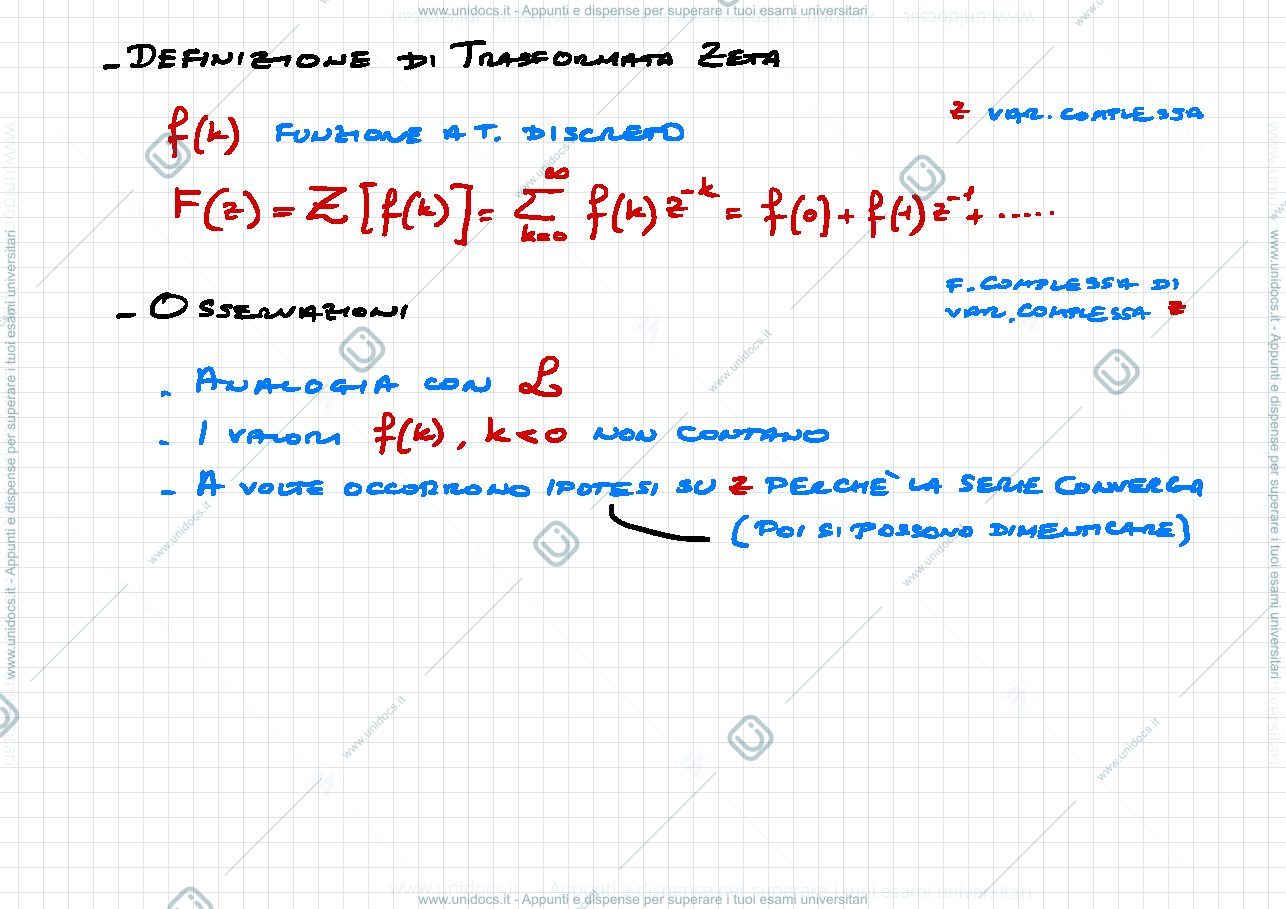 www.unidocs.it - Appunti e dispense per superare i tuoi esami universitari
- DEFINIZIONE DI TRASFORMATA ZETA
f(k) FUNZIONE A T. DISCRETO
z VAR. COMPLESSA
F(z) = Z[f(k)] = ∑_{k=0}^{∞} f(k) z^{-k} = f(0) + f(1) z^{-1} + .....
F. COMPLESSA DI
VAR. COMPLESSA z
- OSSERVAZIONI
- ANALOGIA CON ℒ
- I VALORI f(k), k<0 NON CONTANO
- A VOLTE OCCORRONO IPOTESI SU z PERCHÈ LA SERIE CONVERGA
(POI SI POSSONO DIMENTICARE)
www.unidocs.it - Appunti e dispense per superare i tuoi esami universitari
www.unidocs.it - Appunti e dispense per superare i tuoi esami universitari
www.unidocs.it - Appunti e dispense per superare i tuoi esami universitari
www.unidocs.it
www.unidocs.it
www.unidocs.it
www.unidocs.it
www.unidocs.it
www.unidocs.it